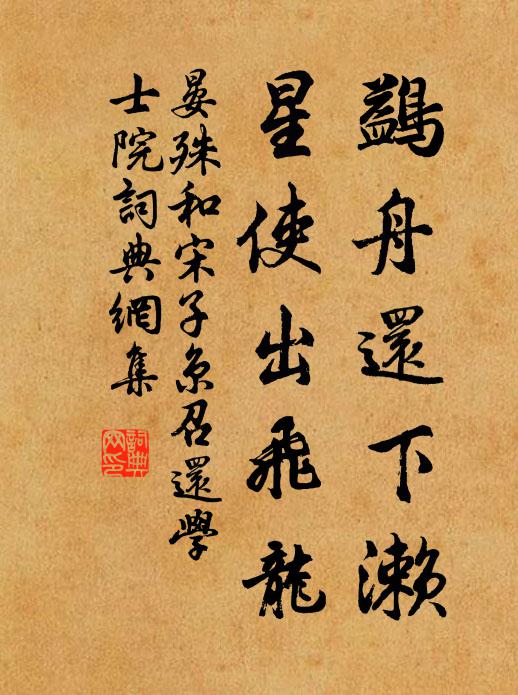 鷁舟還下濑
星使出飛龍
晏殊和宋子京召還學
士院詞典網集
詞典网印